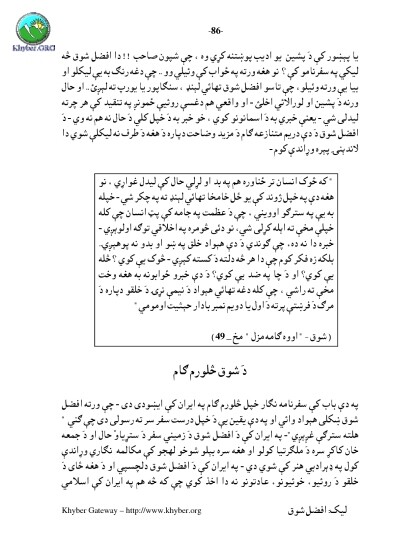 -86-
Khyber.ORG
يا پېښور کې دَ پشين يو اديب پوښتنه کړې وه ، چې شپون صاحب !! دا افضل شوق څه
ليکي په سفرنامو کې ؟ نو هغه ورته په ځواب کې وئيلي وو .. چې دغه رنګ به يې ليکلو او
بيا يې ورته وئيلو، چې تاسو افضل شوق تهائي لېنډ ، سنګاپور يا يورپ ته لېږئ.. او حال
ورنه دَ پشين او لورالائي اخلئ - او واقعي هم دغسې روئيې ځمونږ په تنقيد کې هر چرته
ليدلی شي - يعنې خبرې به دَ اسمانونو کوي ، خو خبر به دَ خپل کلي دَ حال نه هم نه وي - دَ
افضل شوق دَ دې دريم متنازعه ګام دَ مزيد وضاحت دپاره دَ هغه دَ طرف نه ليکلې شوې دا
لاندېنۍ پېره وړاندې کوم -
" که څوک انسان تر ځناوره هم په بد او لړلي حال کې ليدل غواړي ، نو
هغه دې په خپل ژوند کې يو ځل خامخا تهائي لېنډ ته په چکر شي - خپله
به يې په سترګو اوويني ، چې دَ عظمت په جامه کې پټ انسان چې کله
خپلې مخې ته اپله کړلی شي، نو دئ څومره په اخلاقي توګه اولوېږي -
خبره دا نه ده، چې ګوندي دَ دې هېواد خلق په ښو او بدو نه پوهېږي..
بلکه زه فکر کوم چې دا هر څه دلته دَ کسته کېږي - څوک يې کوي ؟ څله
يې کوي؟ او دَ چا په ضد يې کوي؟ دَ دې خبرو ځوابونه به هغه وخت
مخې ته راشي ، چې کله دغه تهائي هېواد دَ نيمې نړۍ دَ خلقو دپاره دَ
مرګ دَ فرښتې پرته دَ اول يا دويم نمبر بادار حېثيت اومومي "
( شوق - " اووه ګامه مزل " مخ _ 49 )
دَ شوق څلورم ګام
په دې باب کې سفرنامه نګار خپل څلورم ګام په ايران کې اېښودی دی - چې ورته افضل
شوق ښکلی هېواد وائي او په دې يقين يې دَ خپل درست سفر سر ته رسولی دی چې ګني "
هلته سترګې غږېږي "- په ايران کې دَ افضل شوق دَ زميني سفر دَ ستړياؤ حال او دَ جمعه
خان کاکړ سره دَ ملګرتيا کولو او هغه سره بېلو شوخو لهجو کې مکالمه نګاري وړاندې
کول په ډېر ادبي هنر کې شوي دي - په ايران کې دَ افضل شوق دلچسپي او دَ هغه ځای دَ
خلقو دَ روئيو، خوئيونو، عادتونو نه دا اخذ کوي چې که څه هم په ايران کې اسلامي
Khyber Gateway – http://www.khyber.org
ليک: افضل شوق